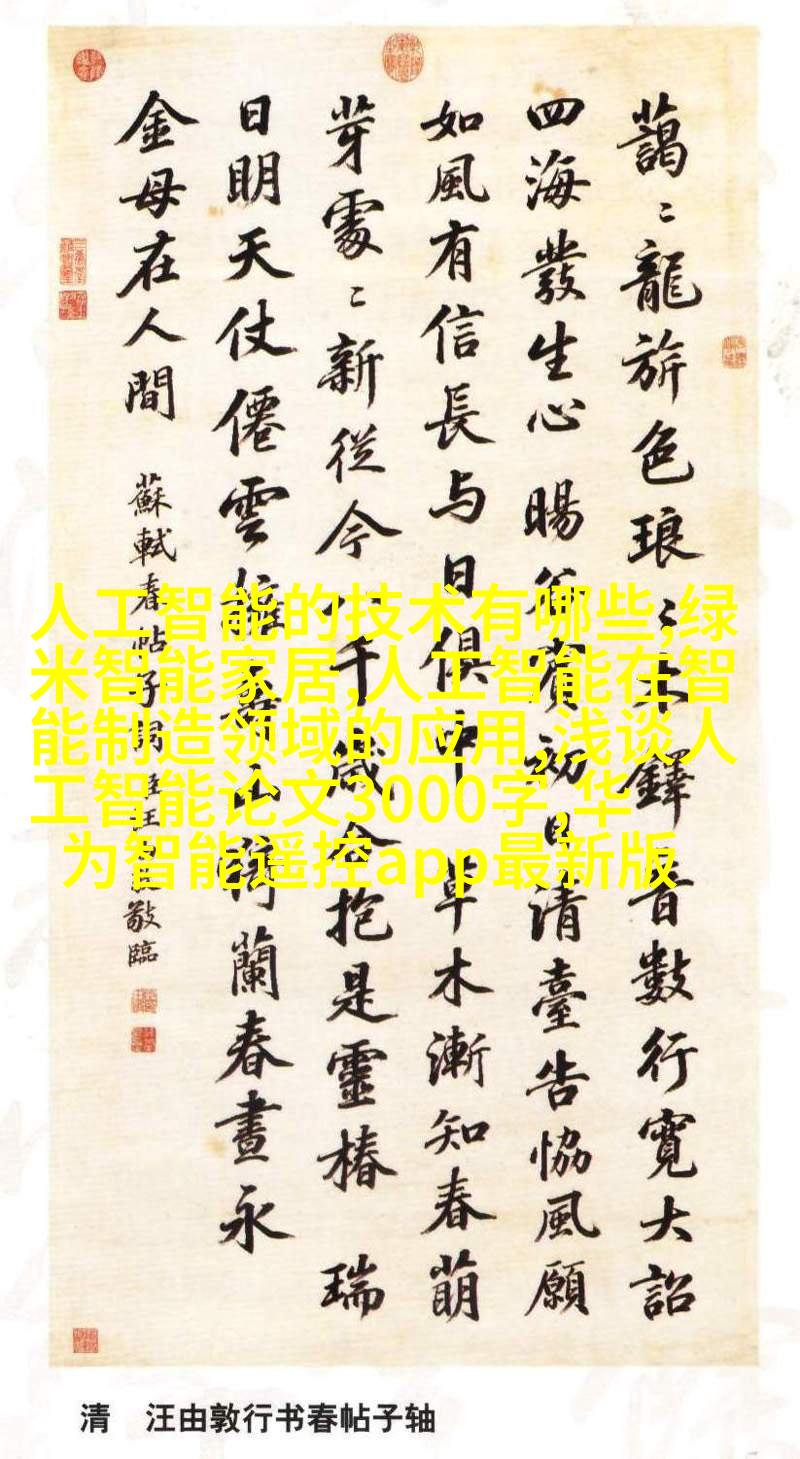 藹〻龍旂色琅〻木鐸音數行寬大詔
四海發生心 暘谷賓初日清臺告協風願
如風有信長与日俱中 草木漸知春萌
芽處〻新從今八千歲合抱是靈椿 瑞
日明天仗僊雲擁壽山倚蘭春晝永
金母在人間
蘇軾春帖子詞 臣汪由敦敬臨
人工智能的技术有哪些,绿
米智能家居,人工智能在智
能制造领域的应用,浅谈人
工智能论文3000字,华
为智能遥控app最新版
清 汪由敦行书春帖子轴